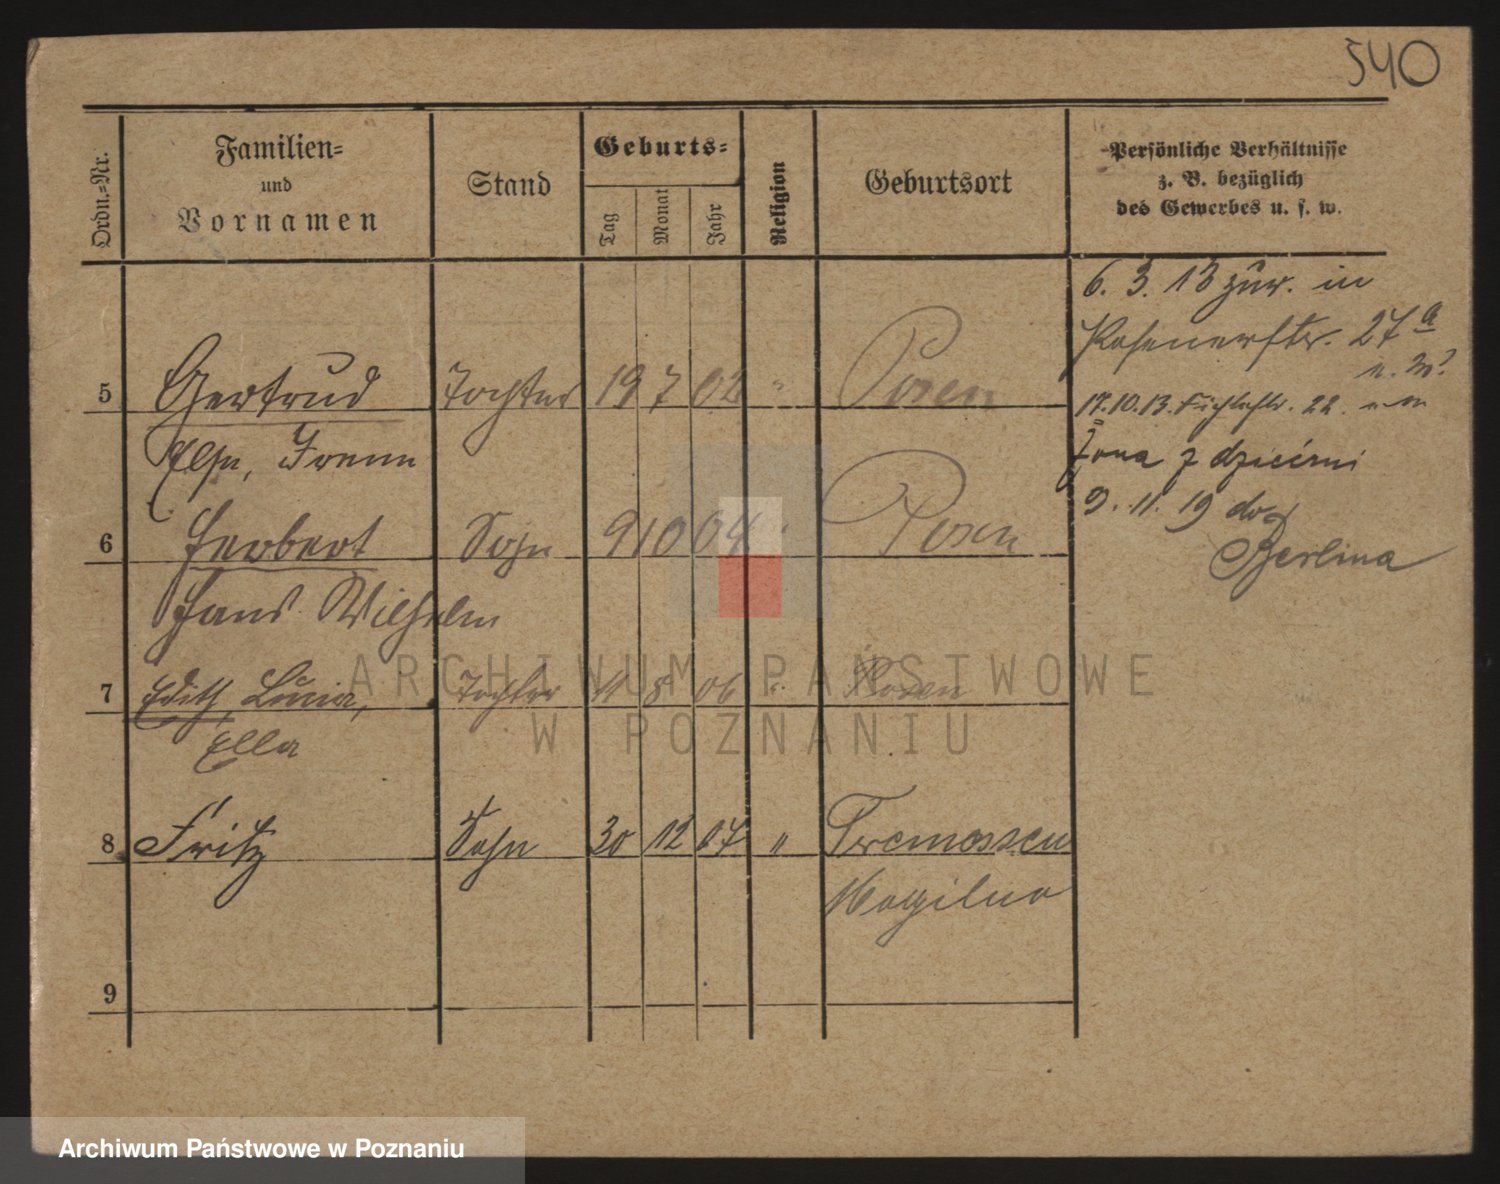 540
Ordn.-Nr.
Familien-
und
Vornamen
Stand
Geburts-
Tag
Monat
Jahr
Religion
Geburtsort
Persönliche Verhältnisse
z. B. bezüglich
des Gewerbes u. s. w.
5 Gertrud Tochter 19 7 02 " Posen
Else, Irene
6 Herbert Sohn 9 10 04 " Posen
Hans Wilhelm
7 Edith, Lucia, Tochter 11 8 06 " Posen
Ella
8 Fritz Sohn 30 12 17 " Tremessen
Mogilno
9
6. 3. 13 zur. in
27a
17.10.13. 22.
Żona z dziećmi
9. 11. 19 do
Berlina
ARCHIWUM PAŃSTWOWE
W POZNANIU
Archiwum Państwowe w Poznaniu